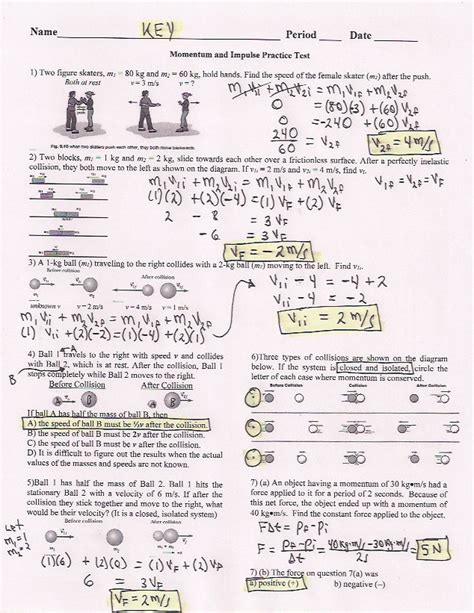 Name KEY Period Date
Momentum and Impulse Practice Test
1) Two figure skaters, m₁ = 80 kg and m₂ = 60 kg, hold hands. Find the speed of the female skater (m₂) after the push.
Both at rest v = 3 m/s v = ?
m₁v₁i + m₂v₂i = m₁v₁f + m₂v₂f
0 = (80)(3) + (60)v₂f
0 = -240 + (60)v₂f
240/60 = v₂f
v₂f = 4 m/s
2) Two blocks, m₁ = 1 kg and m₂ = 2 kg, slide towards each other over a frictionless surface. After a perfectly inelastic
collision, they both move to the left as shown on the diagram. If v₁ᵢ = 2 m/s and v₂ᵢ = 4 m/s, find vf.
m₁v₁i + m₂v₂i = m₁v₁f + m₂v₂f v₁f = v₂f = vf
(1)(2) + (2)(-4) = (1)vF + (2)vF
2 - 8 = 3vF
-6 = 3vF
vF = -2 m/s
3) A 1-kg ball (m₁) traveling to the right collides with a 2-kg ball (m₂) moving to the left. Find v₁ᵢ.
Before collision After collision
m₁ m₂ m₁ m₂
unknown v v = 2 m/s v = 4 m/s v = 1 m/s
m₁v₁i + m₂v₂i = m₁v₁f + m₂v₂f
(1)v₁i + (2)(-2) = (1)(-4) + (2)(1)
v₁i - 4 = -4 + 2
v₁i - 4 = -2
v₁i = 2 m/s
4) Ball 1 travels to the right with speed v and collides
with Ball 2, which is at rest. After the collision, Ball 1
stops completely while Ball 2 moves to the right.
A
B
Before Collision After Collision
If ball A has half the mass of ball B, then
A) the speed of ball B must be ½v after the collision.
B) the speed of ball B must be 2v after the collision.
C) the speed of ball B must be v after the collision.
D) It is difficult to figure out the results when the actual
values of the masses and speeds are not known.
5)Ball 1 has half the mass of Ball 2. Ball 1 hits the
stationary Ball 2 with a velocity of 6 m/s. If after the
collision they stick together and move to the right, what
would be their velocity? (It is a closed, isolated system)
Before collision After collision
Let
m₁ = 1
m₂ = 2
(1)(6) + (2)(0) = (1)vF + (2)vF
6 = 3vF
vF = 2 m/s
6)Three types of collisions are shown on the diagram
below. If the system is closed and isolated, circle the
letter of each case where momentum is conserved.
Before Collision Collision After Collision
7) (a) An object having a momentum of 30 kg•m/s had a
force applied to it for a period of 2 seconds. Because of
this net force, the object ended up with a momentum of
40 kg•m/s. Find the constant force applied to the object.
FΔt = PF - Pi
F = PF - Pi / Δt = 40 kg·m/s - 30 kg·m/s / 2s = 5 N
7) (b) The force on question 7(a) was
a) positive (+) b) negative (–)